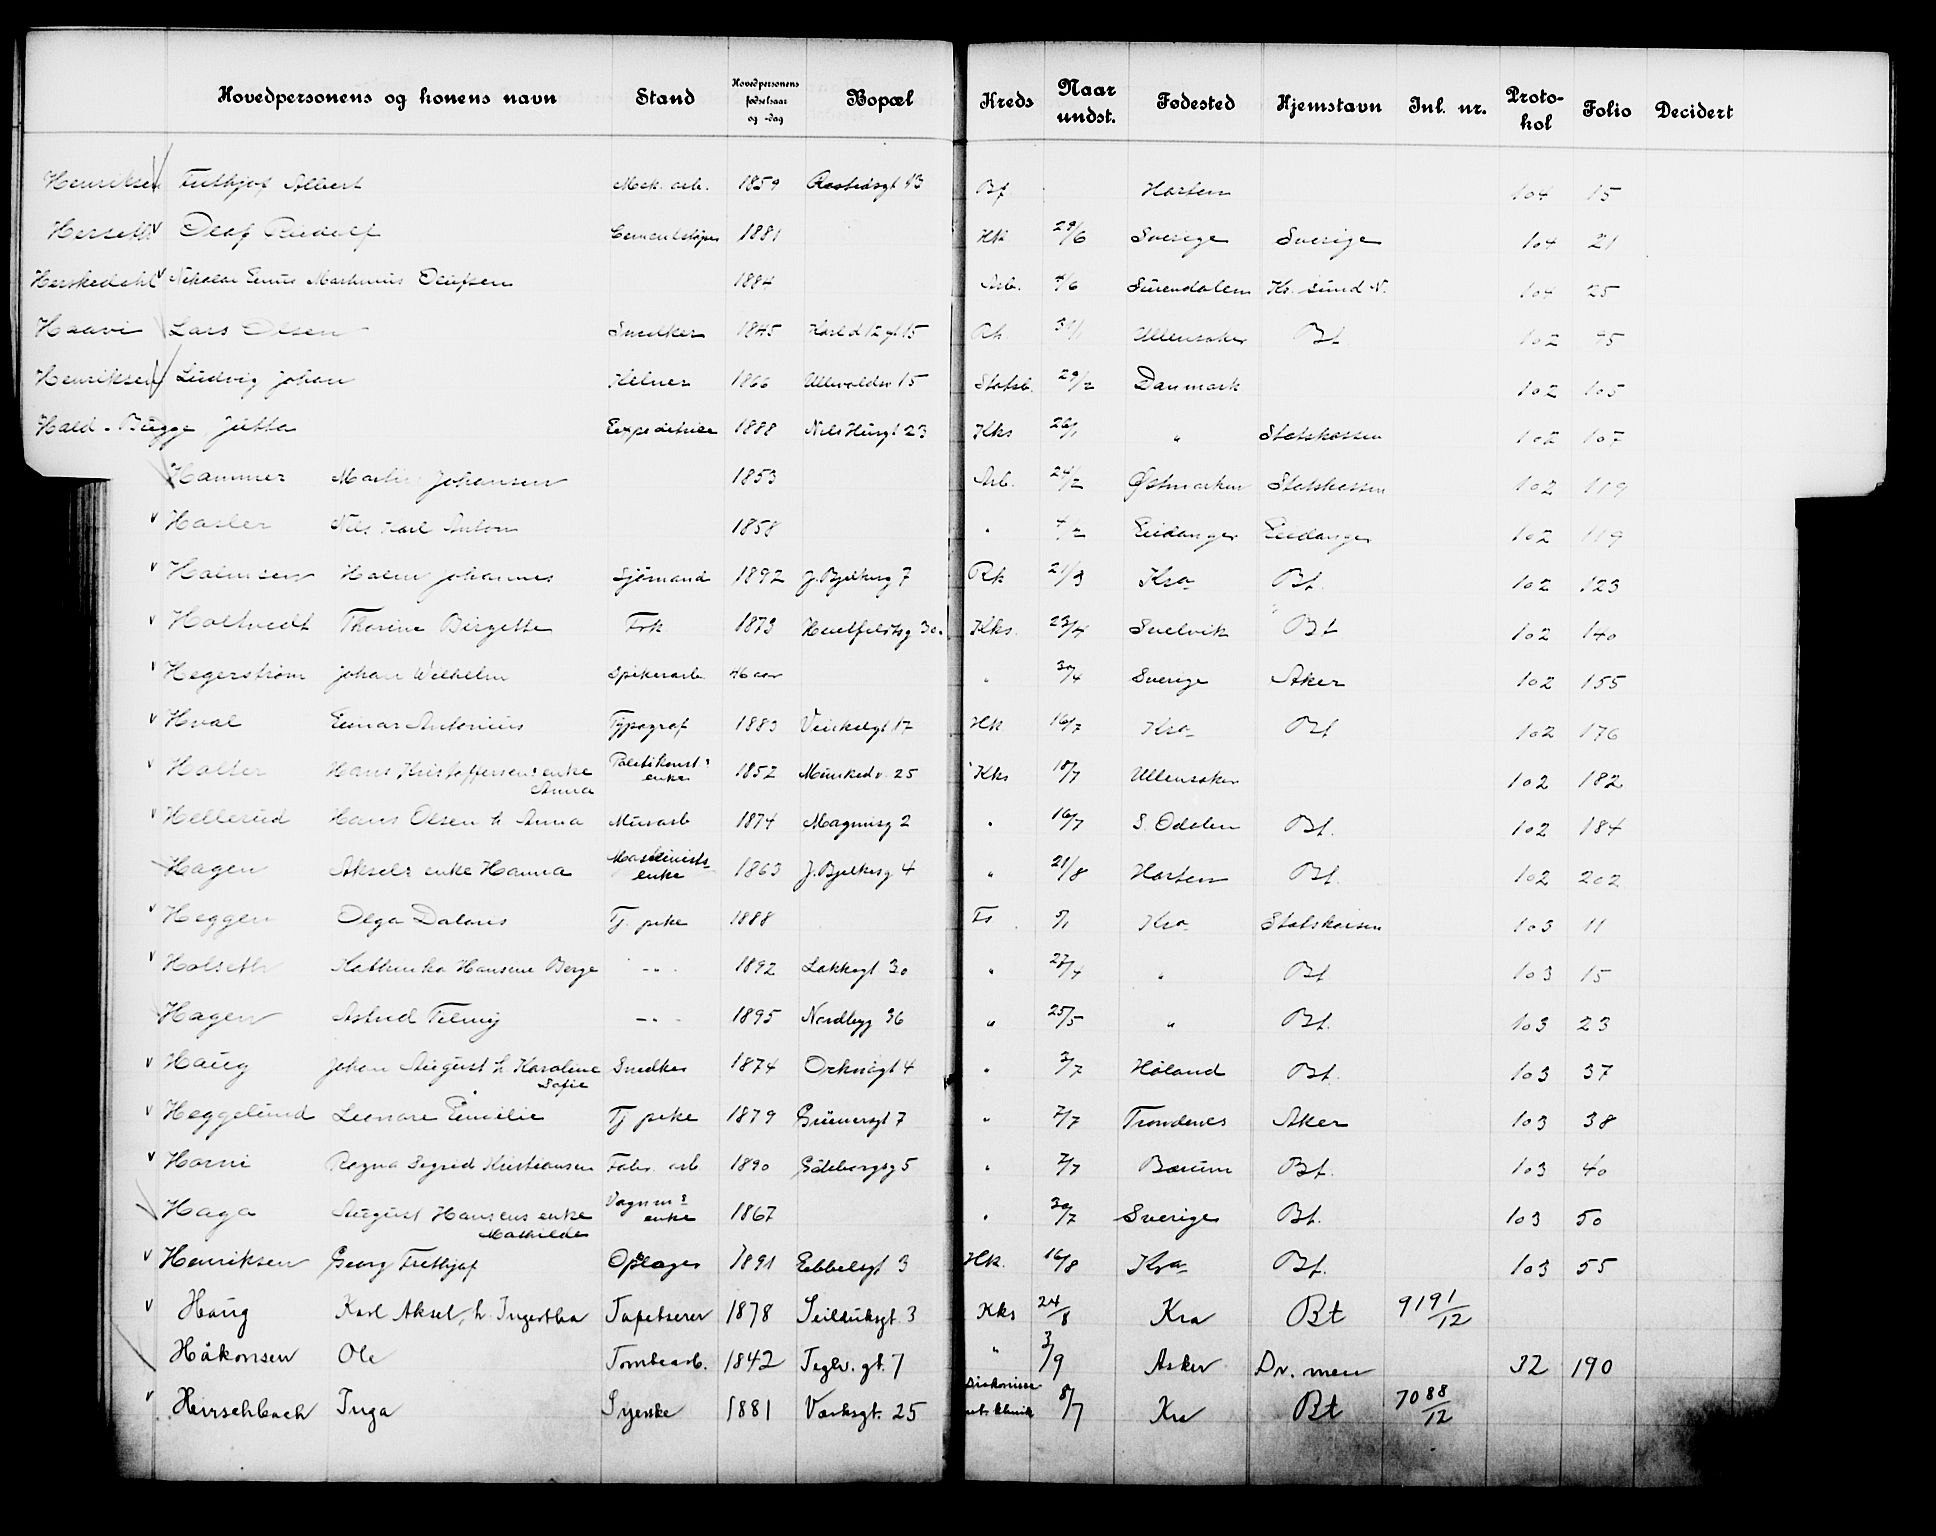 Hovedpersonens og konens navn Stand Hovedpersonens fødselsaar og -dag Bopæl Kreds Naar undst. Fødested Hjemstavn Inl. nr. Proto-kol Folio Decidert
Henriksen Frithjof Albert Mek. arb. 1859 43 Bf Horten 104 15
Herseth Olaf Rudolf 1881 Hk 29/6 Sverige Sverige 104 21
Nikolai Martinius Olufsen 1884 Arb. 4/6 Surendalen Kr. sund N. 104 25
Haavi Lars Olsen Snedker 1845 Karl d 12 gt 15 Rk 31/1 Ullensaker Bt 102 45
Henriksen Ludvig Johan Kelner 1866 Ullevoldsv 15 29/2 Danmark 102 105
Hald-Bugge Jutta Expeditrice 1888 Nils Husgt 23 Kks 26/1 " Statskassen 102 107
Hammer Martin Johansen 1853 Arb. 24/2 Østmarken Statskassen 102 119
Hasler Nils Karl Anton 1858 " 4/2 Eidanger Eidanger 102 119
Holmsen Holm Johannes Sjömand 1892 J. Bjelkesg 7 Rk 21/3 Kra Bt. 102 123
Holtvedt Thorine Birgitte Frk 1873 Huitfeldtsg 30. Kks. 23/4 Svelvik Bt 102 140
Hegerstrøm Johan Wilhelm Spikerarb. 46 aar " 30/4 Sverige Aker 102 155
Hval Einar Antonius Typograf 1883 Vinkelgt 17 Hk 16/7 Kra Bt 102 176
Holter Hans Kristoffersens enke Anna Politikonst's enke 1852 Munkedv. 25 Kks 18/7 Ullensaker 102 182
Hellerud Hans Olsen h Anna Murarb 1874 Magnusg 2 " 16/7 S. Odalen Bt. 102 184
Hagen Aksels enke Hanna Maskinists enke 1863 J. Bjelkesg 4 " 21/8 Horten Bt. 102 202
Heggen Olga Dalaris Tj. pike 1888 Fs 5/1 Kra Statskassen 103 11
Holseth Kathinka Hansine Berge -"- 1892 Lakkegt 30 " 27/4 " Bt 103 15
Hagen Astrid -"- 1895 Nordbyg 36 " 25/5 " Bt. 103 23
Haug Johan August h Karoline Sofie Snedker 1874 Orknøgt 4 " 3/7 Høland Bt. 103 37
Heggelund Leonore Emilie Tj pike 1879 Grünersgt 7 " 7/7 Trondenes Aker 103 38
Horni Ragna Sigrid Kristiansen Fabr. arb. 1890 Göteborgsg 5 " 7/7 Bærum Bt. 103 40
Haga August Hansens enke Mathilde Vognm's enke 1867 " 30/7 Sverige Bt. 103 50
Henriksen Georg Frithjof Oplager 1891 Ebbelsgt 3 Hk. 16/8 Kra Bt. 103 55
Haug Karl Aksel, h. Ingertha Tapetserer 1878 Seilduksgt. 3 Kks 24/8 Kra Bt 9191/12
Håkonsen Ole Tomtearb. 1842 Teglv. gt. 7 " 3/9 Asker Dr. men 32 190
Hirschbach Inga Syerske 1881 Verksgt. 25 8/7 Kra Bt 7088/12